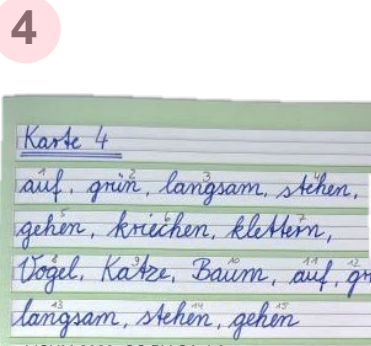 4
Karte 4
auf, grün, langsam, stehen,
gehen, kriechen, klettern,
Vogel, Katze, Baum, auf,
langsam, stehen, gehen